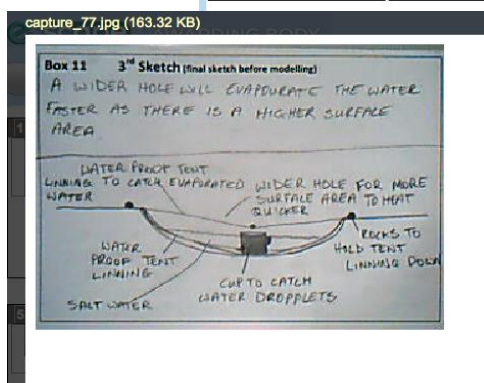 capture_77.jpg (163.32 KB)
Box 11 3rd Sketch (final sketch before modelling)
A WIDER HOLE WILL EVAPOURATE THE WATER
FASTER AS THERE IS A HIGHER SURFACE
AREA
WATER PROOF TENT
LINNING TO CATCH EVAPORATED
WATER
WIDER HOLE FOR MORE
SURFACE AREA TO HEAT
QUICKER
ROCKS TO
HOLD TENT
LINNING DOWN
WATER
PROOF TENT
LINNING
CUP TO CATCH
WATER DROPPLETS
SALT WATER